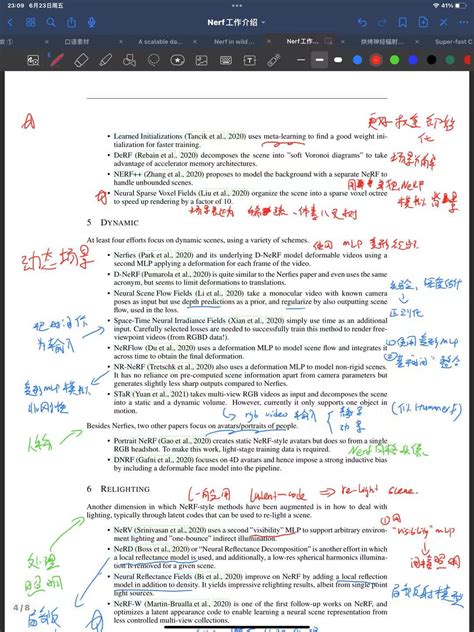 23:09 6月23日周五
41%
Nerf工作介绍
口语素材
A scalable da...
Nerf in wild...
Nerf工作...
烘烤神经辐射...
Super-fast C
• Learned Initializations (Tancik et al., 2020) uses meta-learning to find a good weight ini-
tialization for faster training.
• DeRF (Rebain et al., 2020) decomposes the scene into "soft Voronoi diagrams" to take
advantage of accelerator memory architectures.
• NERF++ (Zhang et al., 2020) proposes to model the background with a separate NeRF to
handle unbounded scenes.
• Neural Sparse Voxel Fields (Liu et al., 2020) organize the scene into a sparse voxel octree
to speed up rendering by a factor of 10.
5 DYNAMIC
At least four efforts focus on dynamic scenes, using a variety of schemes.
动态场景
• Nerfies (Park et al., 2020) and its underlying D-NeRF model deformable videos using a
second MLP applying a deformation for each frame of the video.
• D-NeRF (Pumarola et al., 2020) is quite similar to the Nerfies paper and even uses the same
acronym, but seems to limit deformations to translations.
• Neural Scene Flow Fields (Li et al., 2020) take a monocular video with known camera
poses as input but use depth predictions as a prior, and regularize by also outputting scene
flow, used in the loss.
正则化
• Space-Time Neural Irradiance Fields (Xian et al., 2020) simply use time as an additional
input. Carefully selected losses are needed to successfully train this method to render free-
viewpoint videos (from RGBD data!).
为输入
• NeRFlow (Du et al., 2020) uses a deformation MLP to model scene flow and integrates it
across time to obtain the final deformation.
• NR-NeRF (Tretschk et al., 2020) also uses a deformation MLP to model non-rigid scenes.
It has no reliance on pre-computed scene information apart from camera parameters but
generates slightly less sharp outputs compared to Nerfies.
• STaR (Yuan et al., 2021) takes multi-view RGB videos as input and decomposes the scene
into a static and a dynamic volume. However, currently it supports only one object in
motion.
rgb video 输入
Besides Nerfies, two other papers focus on avatars/portraits of people.
• Portrait NeRF (Gao et al., 2020) creates static NeRF-style avatars but does so from a single
RGB headshot. To make this work, light-stage training data is required.
• DNRF (Gafni et al., 2020) focuses on 4D avatars and hence impose a strong inductive bias
by including a deformable face model into the pipeline.
6 RELIGHTING
latent-code ⇒ re-light scene.
Another dimension in which NeRF-style methods have been augmented is in how to deal with
lighting, typically through latent codes that can be used to re-light a scene.
• NeRV (Srinivasan et al., 2020) uses a second "visibility" MLP to support arbitrary environ-
ment lighting and "one-bounce" indirect illumination.
"visibility" mlp
• NeRD (Boss et al., 2020) or "Neural Reflectance Decomposition" is another effort in which
a local reflectance model is used, and additionally, a low-res spherical harmonics illumina-
tion is removed for a given scene.
处理
照明
• Neural Reflectance Fields (Bi et al., 2020) improve on NeRF by adding a local reflection
model in addition to density. It yields impressive relighting results, albeit from single point
light sources.
• NeRF-W (Martin-Brualla et al., 2020) is one of the first follow-up works on NeRF, and
optimizes a latent appearance code to enable learning a neural scene representation from
less controlled multi-view collections.
4/8